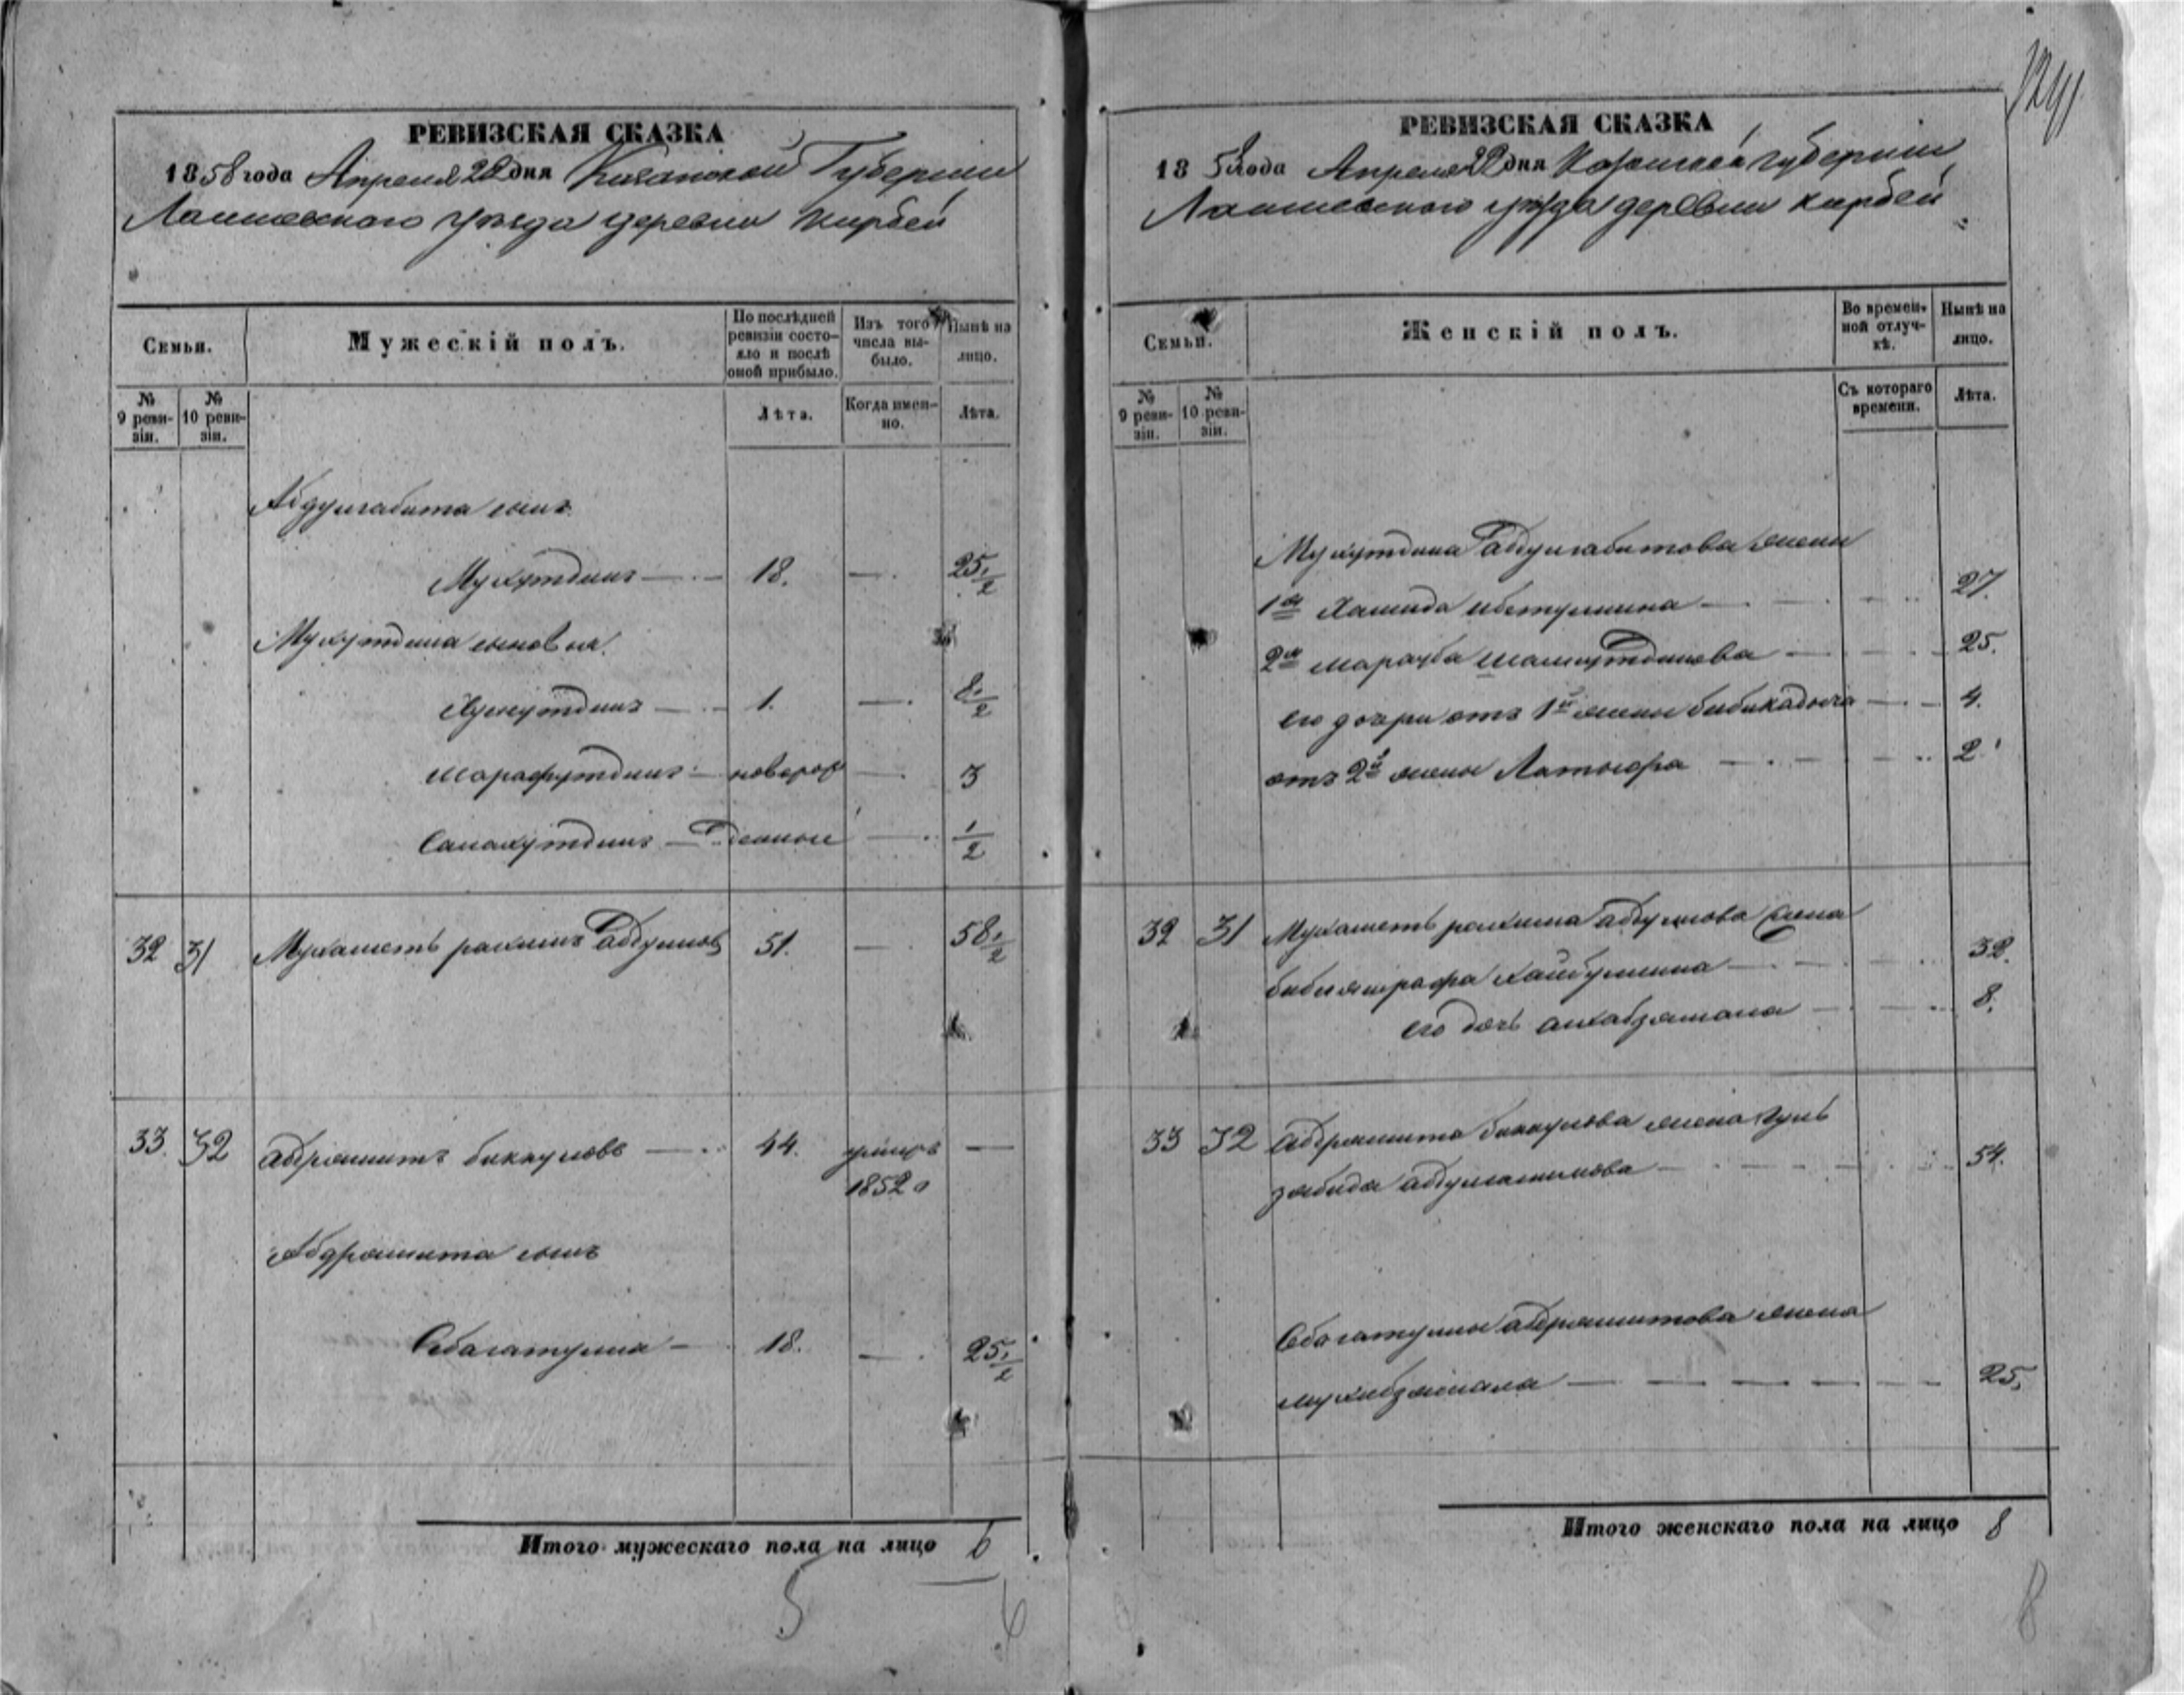 1241
РЕВИЗСКАЯ СКАЗКА
1858 года Апреля 22 дня Казанской Губернии
Лаишевского уезда деревни Кирбей
Семьи.
Мужескій полъ.
По послѣдней ревизіи состояло и послѣ оной прибыло.
Изъ того числа выбыло.
Нынѣ на лицо.
№ 9 ревизіи.
№ 10 ревизіи.
Лѣта.
Когда именно.
Лѣта.
Абдулгабита сынъ
Мухутдинъ 18. — 25 1/2
Мухутдина сыновья
1. — 8 1/2
Шарафутдинъ новорож — 3
Салахутдинъ — денные — 1/2
32 31 Мухаметь рахимъ абдулловъ 51. — 58 1/2
33. 32 абдрашитъ биккуловъ — 44. умеръ 1852 —
Абдрашита сынъ
18. — 25 1/2
Итого мужескаго пола на лицо 6
5
6
РЕВИЗСКАЯ СКАЗКА
1858 года Апреля 22 дня Казанской губернии
Лаишевского уезда деревни кирбей
Семьи.
Женскій полъ.
Во временной отлучкѣ.
Нынѣ на лицо.
№ 9 ревизіи.
№ 10 ревизіи.
Съ котораго времени.
Лѣта.
Мухутдина абдулгабитова жены
1я Хамида — 27.
2я — 25.
его дочери отъ 1й жены бибикадыча — 4.
отъ 2й жены — 2
32 31 Мухаметь рахима абдуллова жена
бибишарафа хайбуллина — 32.
его дочь — 8.
33 32 абдрашита биккулова жена гуль
забида — 54.
абдрашитова жена
25.
Итого женскаго пола на лицо 8
8